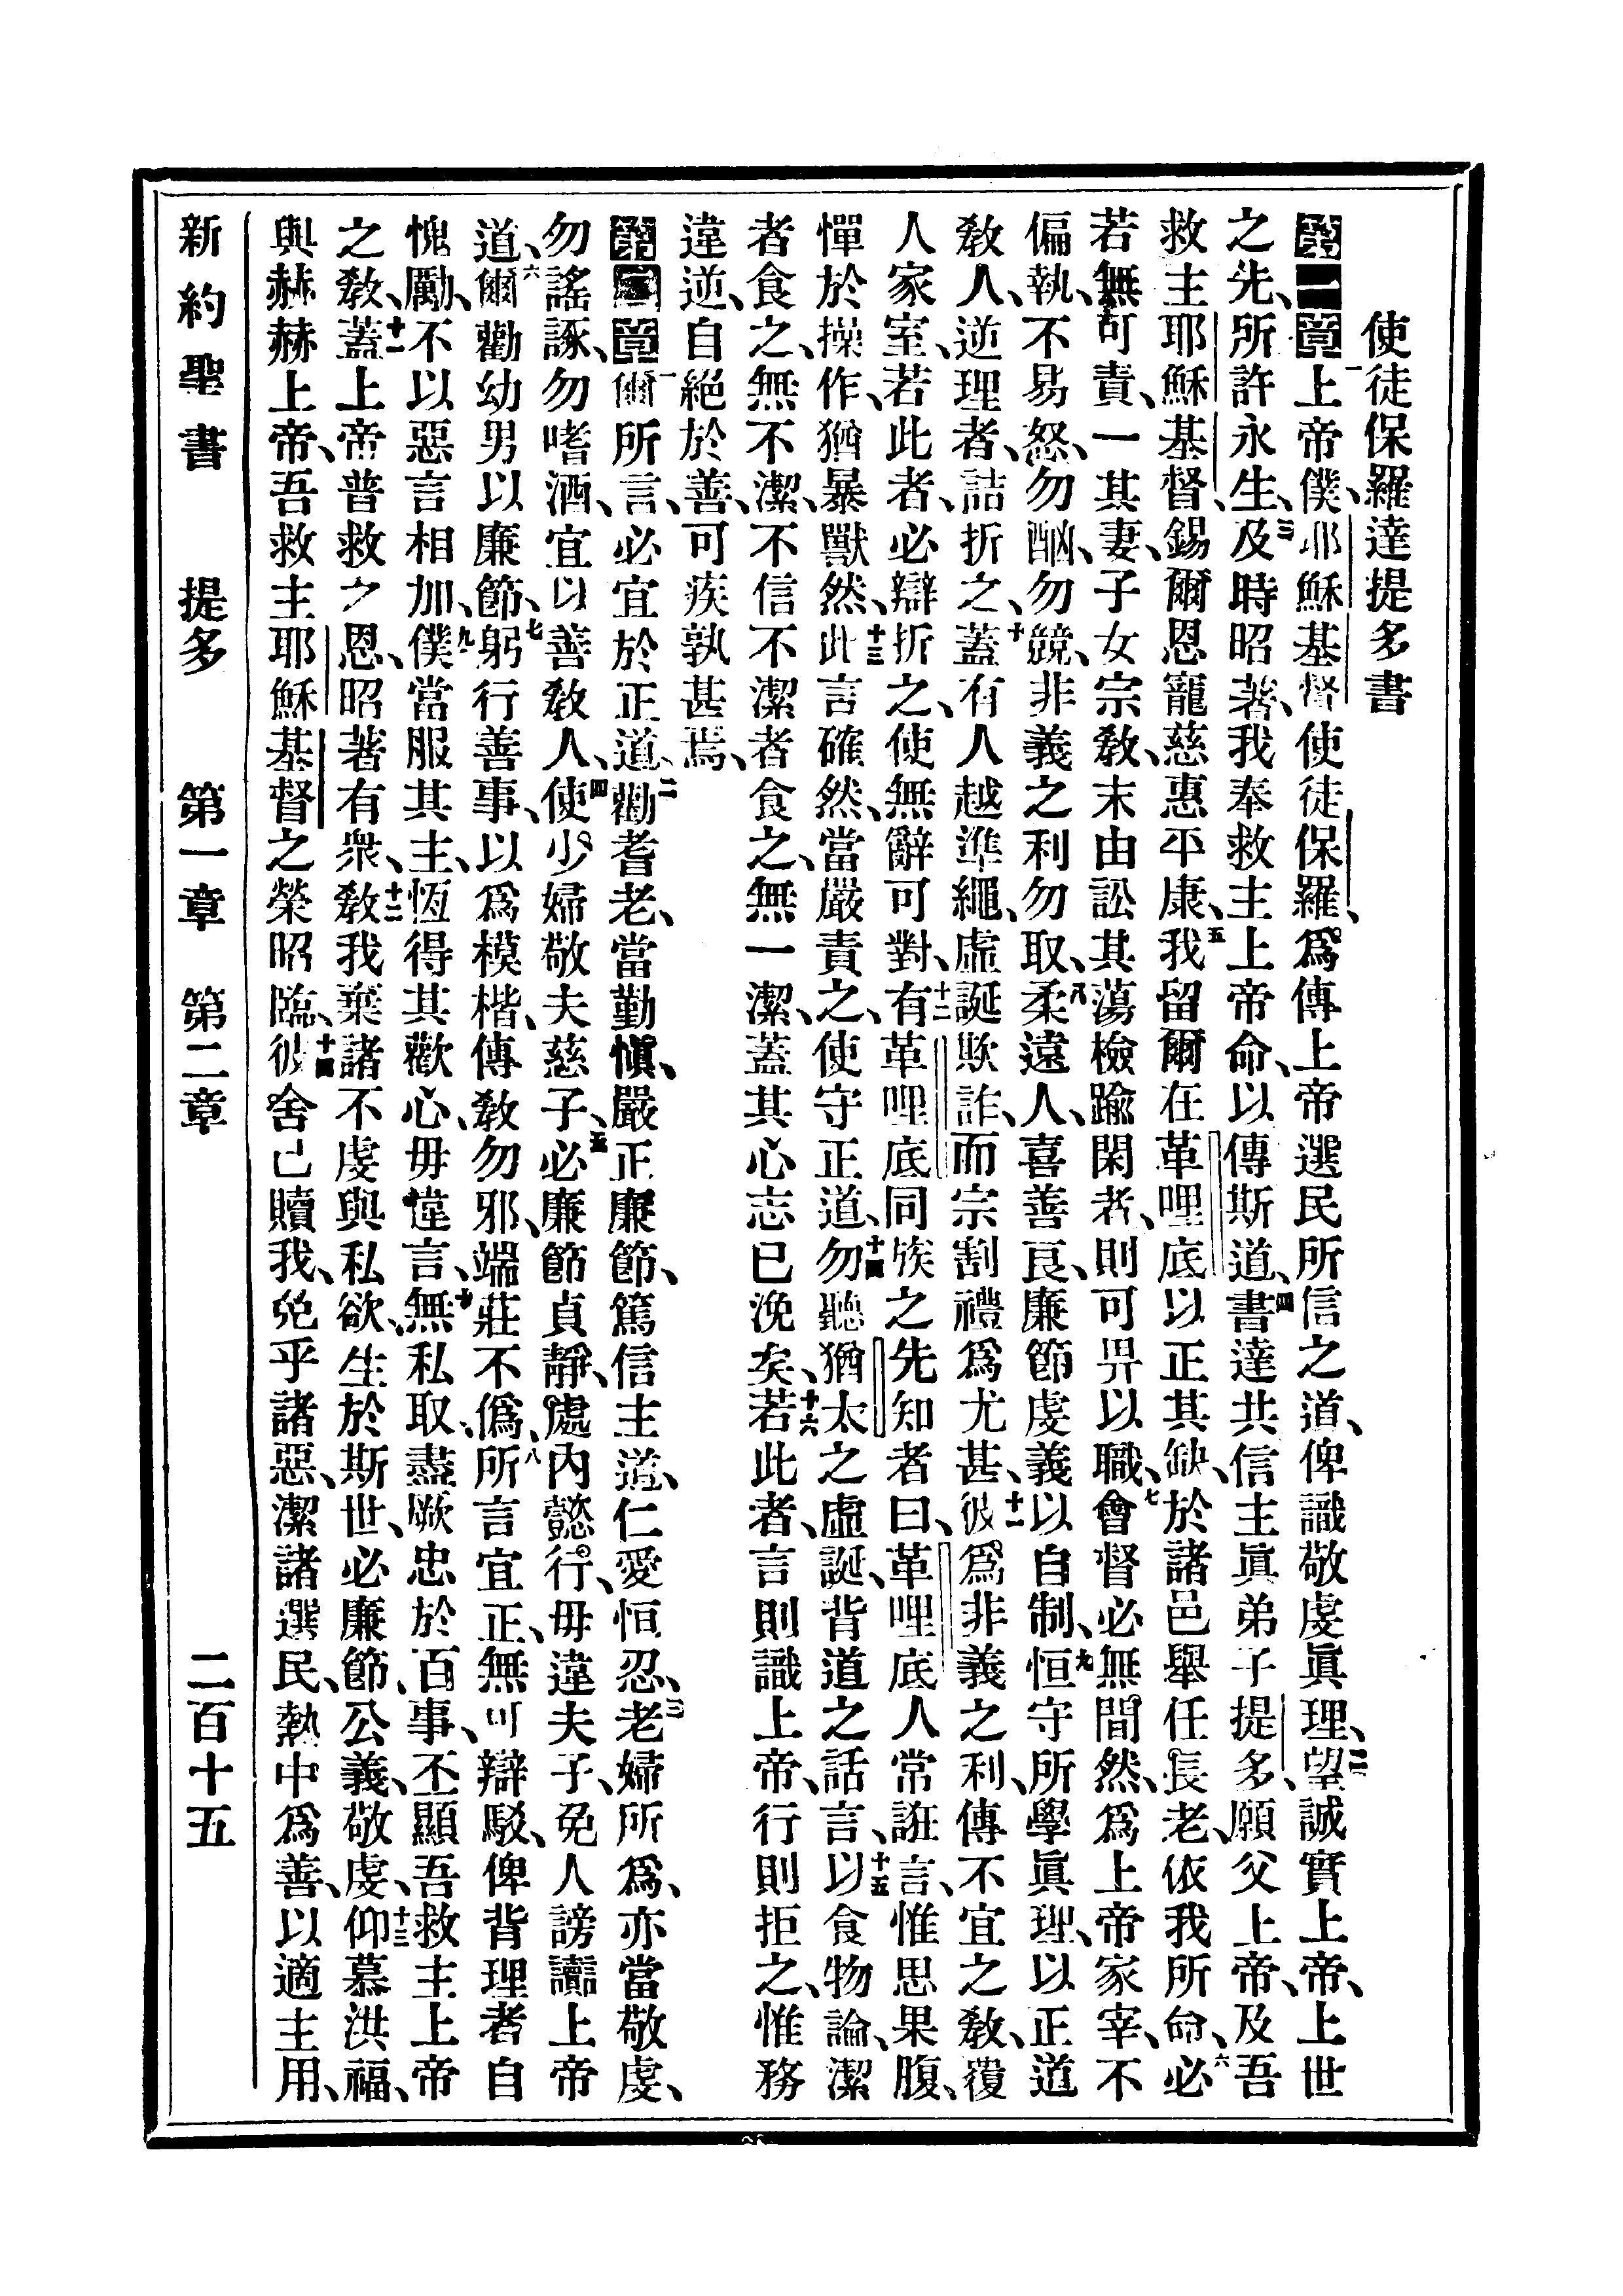 使徒保羅達提多書
第一章一上帝僕、耶穌基督使徒保羅、爲傳上帝選民所信之道、俾識敬虔眞理、二望誠實上帝、上世
之先、所許永生、三及時昭著、我奉救主上帝命、以傳斯道、四書達共信主眞弟子提多、願父上帝、及吾
救主耶穌基督、錫爾恩寵慈惠平康、五我留爾在革哩底、以正其缺、於諸邑舉任長老、依我所命、六必
若無可責、一其妻、子女宗敎、末由訟其蕩檢踰閑者、則可畀以職、七會督必無間然、爲上帝家宰、不
偏執、不易怒、勿酗、勿競、非義之利勿取、八柔遠人、喜善良、廉節虔義以自制、九恒守所學眞理、以正道
敎人、逆理者、詰折之、十蓋有人越準繩、虛誕欺詐、而宗割禮爲尤甚、十一彼爲非義之利、傳不宜之敎、覆
人家室、若此者、必辯折之、使無辭可對、十二有革哩底同族之先知者曰、革哩底人常誑言、惟思果腹、
憚於操作、猶暴獸然、十三此言確然、當嚴責之、使守正道、十四勿聽猶太之虛誕、背道之話言、十五以食物論、潔
者食之、無不潔、不信不潔者食之、無一潔、蓋其心志已浼矣、十六若此者、言則識上帝、行則拒之、惟務
違逆、自絕於善、可疾孰甚焉、
第二章一爾所言、必宜於正道、二勸耆老、當勤愼、嚴正廉節、篤信主道、仁愛恒忍、三老婦所爲、亦當敬虔、
勿謠諑、勿嗜酒、宜以善敎人、四使少婦敬夫慈子、五必廉節貞靜、處內懿行、毋違夫子、免人謗讟上帝
道、六爾勸幼男以廉節、七躬行善事、以爲模楷、傳敎勿邪、端莊不僞、八所言宜正、無可辯駁、俾背理者自
愧勵、不以惡言相加、九僕當服其主、恆得其歡心、毋違言、十無私取、盡厥忠於百事、丕顯吾救主上帝
之敎、十一蓋上帝普救之恩、昭著有衆、十二敎我棄諸不虔與私欲、生於斯世、必廉節、公義、敬虔、十三仰慕洪福、
與赫赫上帝、吾救主耶穌基督之榮昭臨、十四彼舍己贖我、免乎諸惡、潔諸選民、熱中爲善、以適主用、
新約聖書 提多 第一章 第二章 二百十五